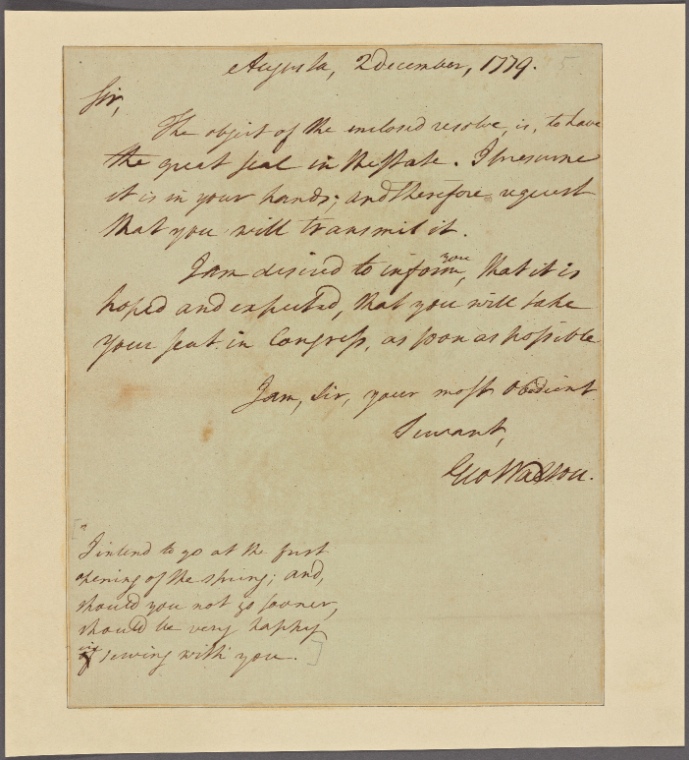 Augusta, 2 december, 1779.
Sir,
The object of the enclosed resolve, is, to have
the great seal in the State. I presume
it is in your hands; and therefore request
that you will transmit it.
I am desired to inform you, that it is
hoped and expected, that you will take
your seat in Congress, as soon as possible
I am, Sir, your most obedient
Servant,
Geo Walton.
I intend to go at the first
opening of the spring; and,
should you not go sooner,
should be very happy
in serving with you.